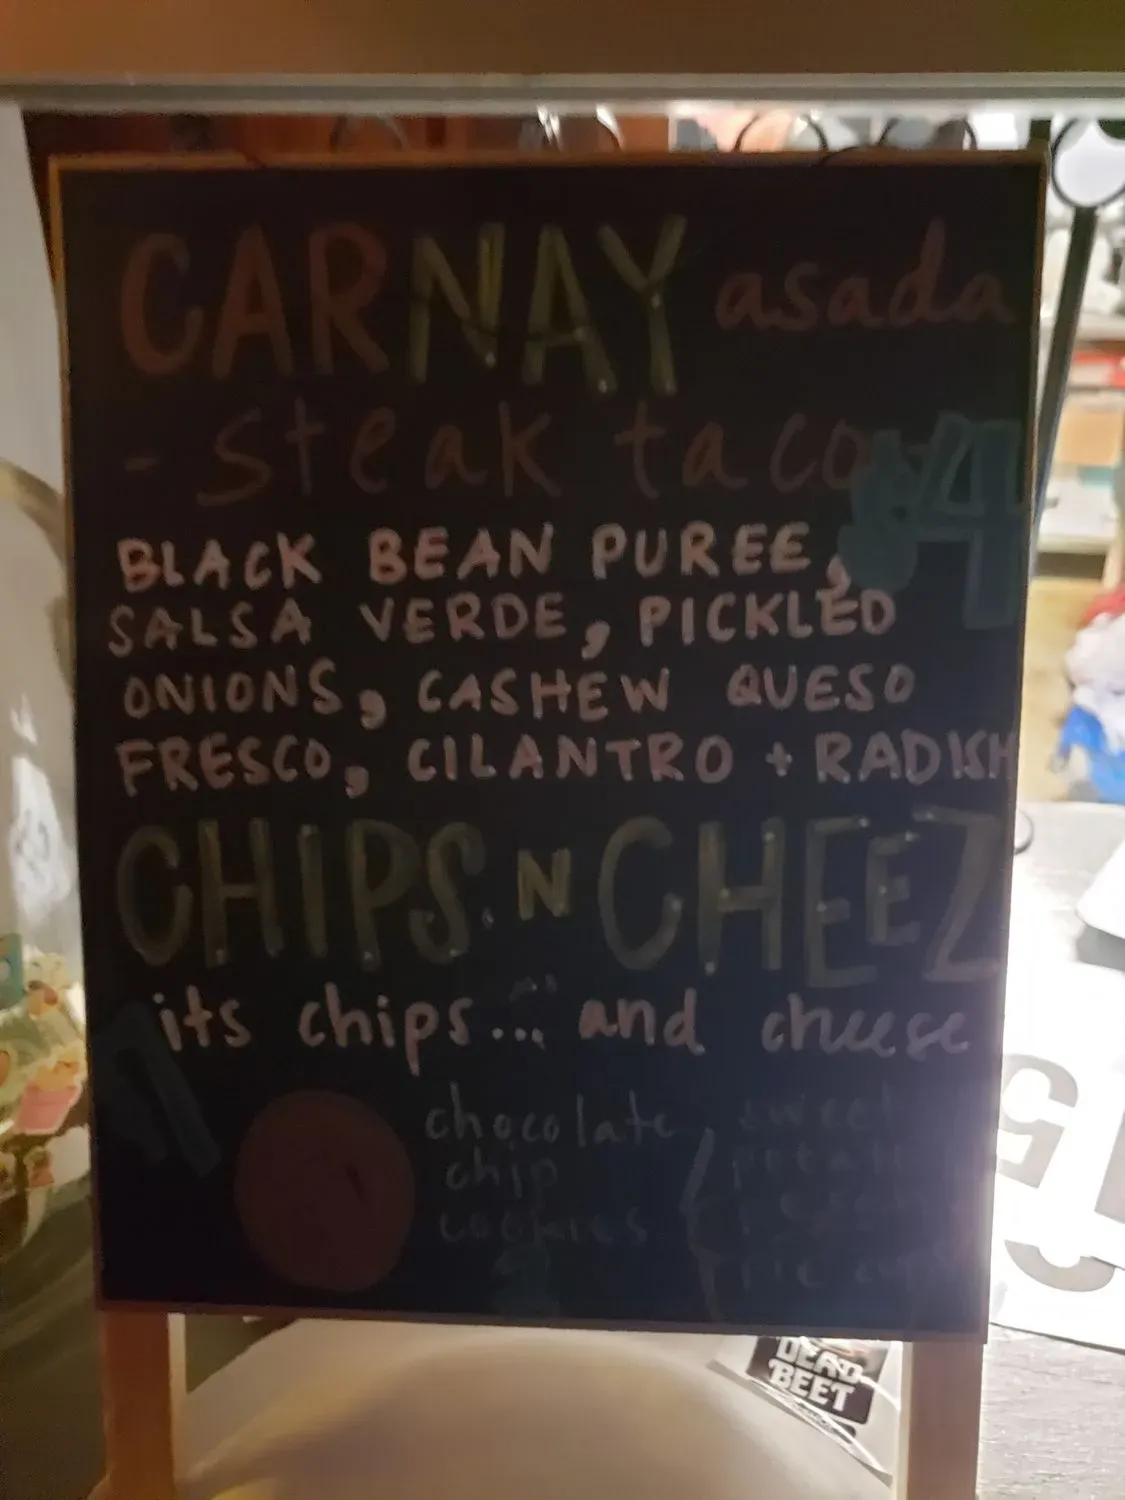 CARNAY asada
- steak tacos $4
BLACK BEAN PUREE,
SALSA VERDE, PICKLED
ONIONS, CASHEW QUESO
FRESCO, CILANTRO + RADISH
CHIPS N CHEEZ
its chips... and cheese
chocolate
chip
cookies
sweet
potato
pecan
pie
DEAD
BEET